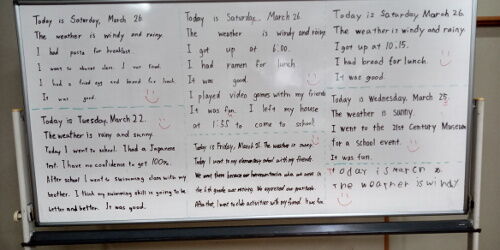 Today is Saturday, March 26.
The weather is windy and rainy.
I had pasta for breakfast.
I went to abacus class. I was tired.
I had a fried egg and bread for lunch.
It was good.
Today is Tuesday, March 22.
The weather is rainy and sunny.
Today I went to school. I had a Japanese
test. I have no confidence to get 100%.
After school I went to Swimming class with my
brother. I think my swimming skill is going to be
better and better. It was good.
Today is Saturday. March 26
The weather is windy and rainy
I got up at 6:00.
I had ramen for lunch
It was good.
I played video games with my friends
It was fun. I left my house
at 1:35 to come to school
Today is Friday, March 25. The weather is sunny.
Today I went to my elementary school with my friends.
We went there because our homeroom teacher when we were in
the 6th grade was moving. We expressed our gratitude.
After that, I went to club activities with my friend. It was fun.
Today is Saturday March 26.
The weather is windy and rainy.
I got up at 10.15.
I had bread for lunch.
It was good.
Today is Wednesday, March 25.
The weather is sunny.
I went to the 21st Century Museum
for a school event.
It was fun.
Today is March
The weather is windy